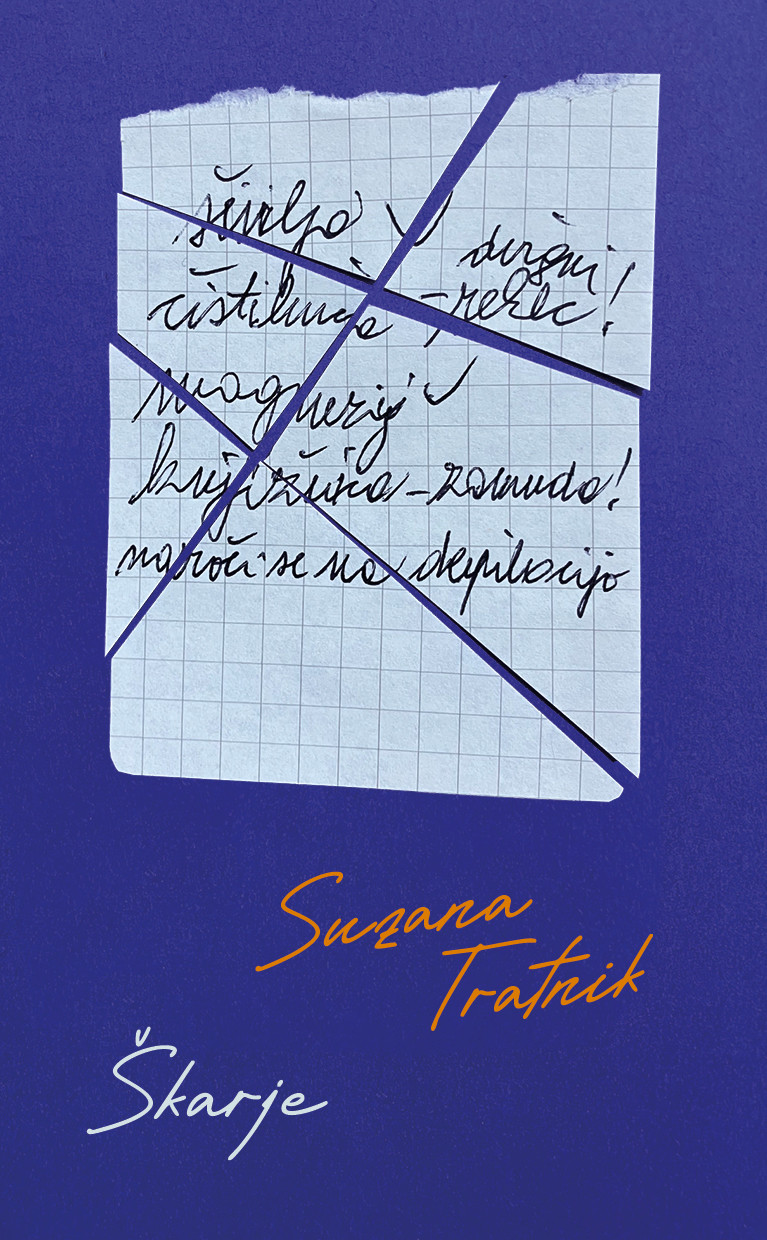 šivilja ✓
čistilnica -
magnezij ✓
knjižnica - zamuda!
naroči se na depilacijo
Suzana
Tratnik
Škarje